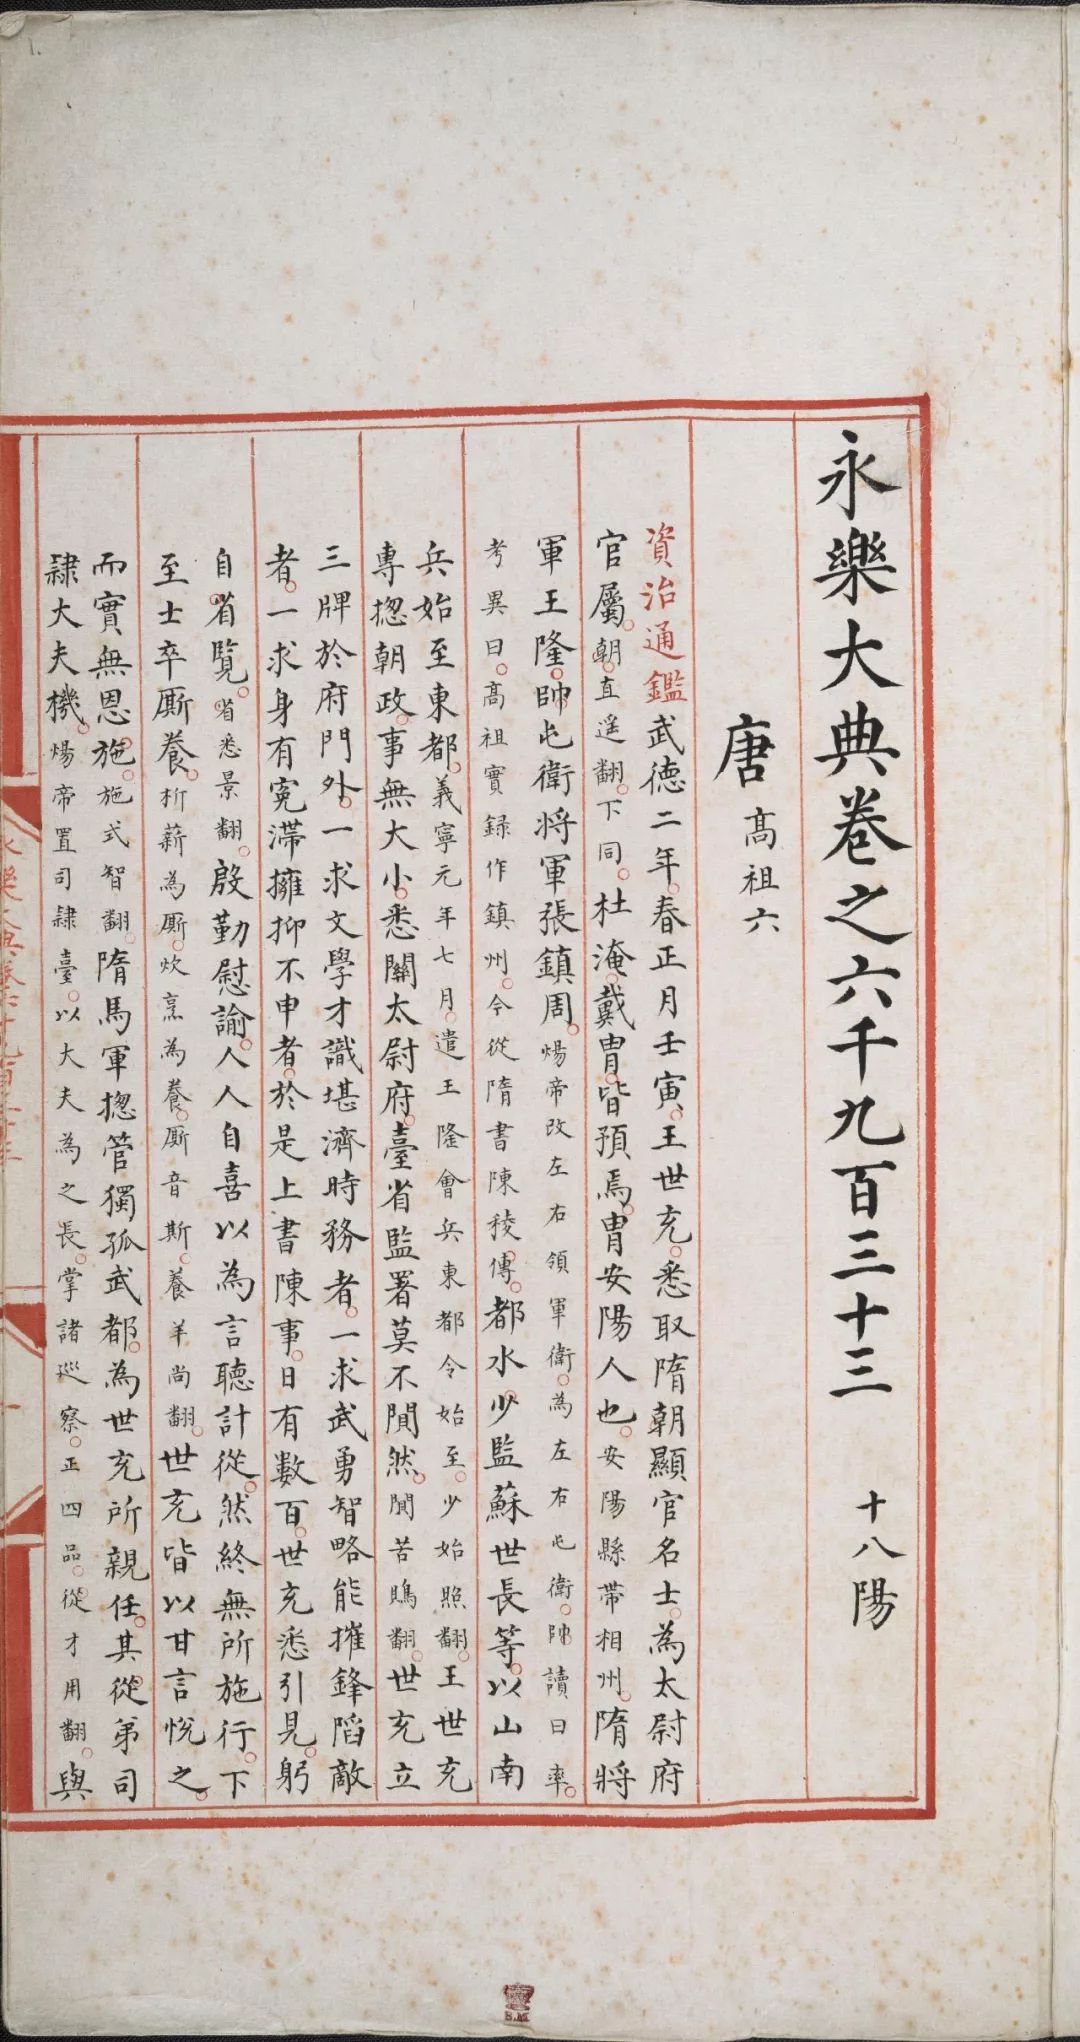 永樂大典卷之六千九百三十三 十八陽
唐 髙祖六
資治通鑑武德二年。春正月壬寅、王世充。悉取隋朝顯官名士。為太尉府
官屬。朝。直遥翻。下同。杜淹。戴胄。皆預焉。胄安陽人也。安陽縣帶相州。隋將
軍王隆。帥屯衛将軍張鎮周。煬帝改左右領軍衛。為左右屯衛。帥讀曰率。
考異曰。髙祖實録作鎮州。今從隋書陳稜傳。都水少監蘇世長等。以山南
兵始至東都。義寧元年七月。遣王隆會兵東都令始至。少始照翻。王世充
專揔朝政。事無大小。悉關太尉府。臺省監署莫不閴然。閴苦鵙翻。世充立
三牌於府門外。一求文學才識堪濟時務者。一求武勇智略能摧鋒陷敵
者。一求身有寃滯擁抑不申者。於是上書陳事。日有數百。世充悉引見。躬
自省覽。省悉景翻。殷勤慰諭。人人自喜以為言聽計從。然終無所施行。下
至士卒厮養。析薪為厮。炊烹為養。厮音斯。養羊尚翻。世充皆以甘言悅之。
而實無恩施。施式智翻。隋馬軍揔管獨孤武都。為世充所親任。其從弟司
隷大夫機。煬帝置司隷臺。以大夫為之長。掌諸巡察。正四品。從才用翻。與
1.
B.M.